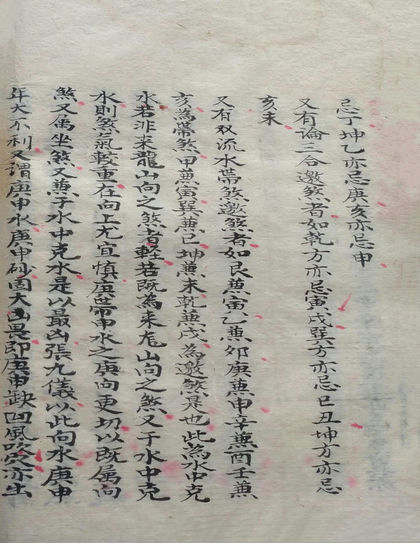 忌丁坤乙亦忌庚亥亦忌申
又有論三合邀煞者如乾方亦忌寅戌巽方亦忌巳丑坤方亦忌
亥未
又有双流水帶煞邀煞者如艮兼寅乙兼卯庚兼申辛兼酉壬兼
亥為帶煞甲兼寅巽兼巳坤兼未乾兼戌為邀煞是也此為水中克
水若非来龍山向之煞者輕若既為来龙山向之煞又于水中克
水則煞氣較重在向上尤宜慎庚帶申水之庚向更切以既属向
煞又属坐煞又兼于水中克水是以最凶張九儀以此向水庚申
年大不利又謂庚申水庚申砂固大凶畏即庚申缺凹風路亦主